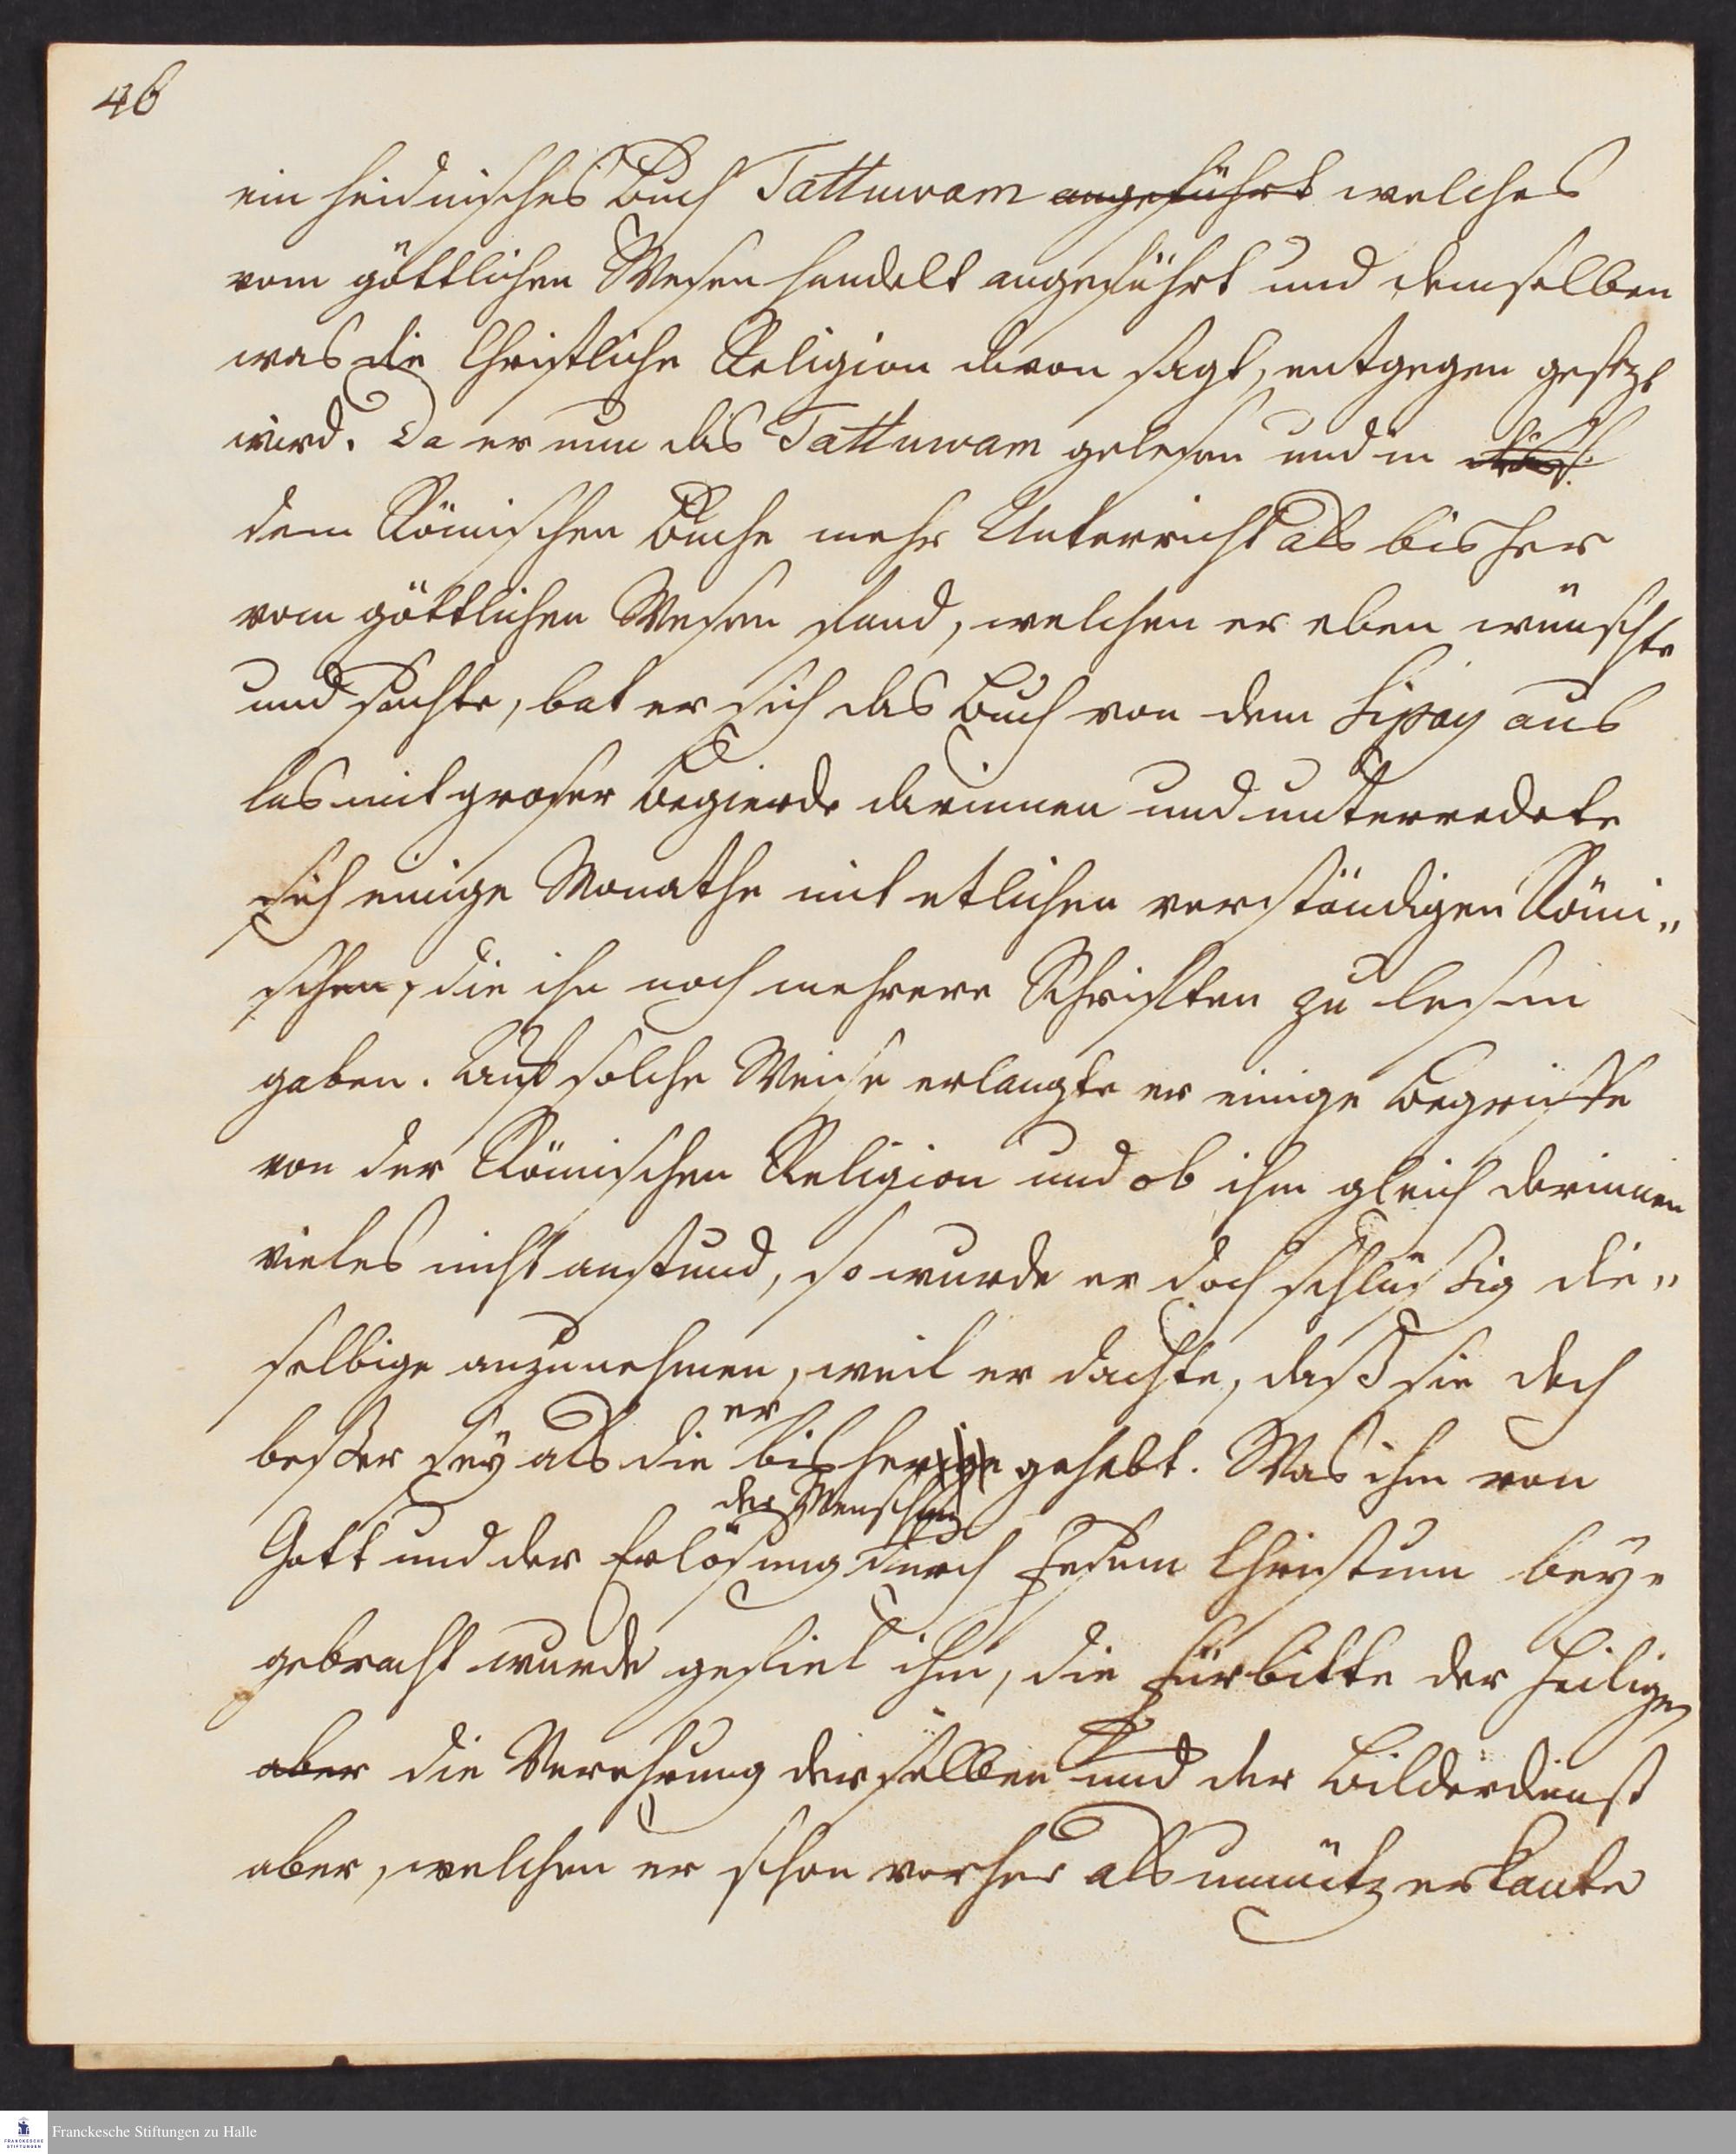 46
ein heidnisches Buch Tattuwam angeführt welches
vom göttlichen Wesen handelt angeführt und demselben
was die Christliche Religion davon sagt, entgegen gesezt
wird. Da er nun das Tattuwam gelesen und in
dem Römischen Buche mehr Unterricht als bisher
vom göttlichen Wesen fand, welchen er eben wünschte
und suchte, bat er sich das Buch von dem Sipay aus
las mit groser Begierde darinnen und unterredete
sich einige Monathe mit etlichen verständigen Römi„
schen, die ihn noch mehrere Schriften zu lesen
gaben. Auf solche Weise erlangte er einige Begriffe
von der Römischen Religion und ob ihm gleich darinnen
vieles nicht anstund, so wurde er doch schlüßig die„
selbige anzunehmen, weil er dachte, daß sie doch
er
beßer sey als die bisherige gehabt. Was ihm von
der Menschen
Gott und der Erlösung durch Jesum Christum bey„
gebracht wurde gefiel ihm, die Fürbitte der Heiligen
aber die Verehrung derselben und der Bilderdienst
aber, welchen er schon vorher als unnütz erkante
Franckesche Stiftungen zu Halle
FRANCKESCHE
STIFTUNGEN